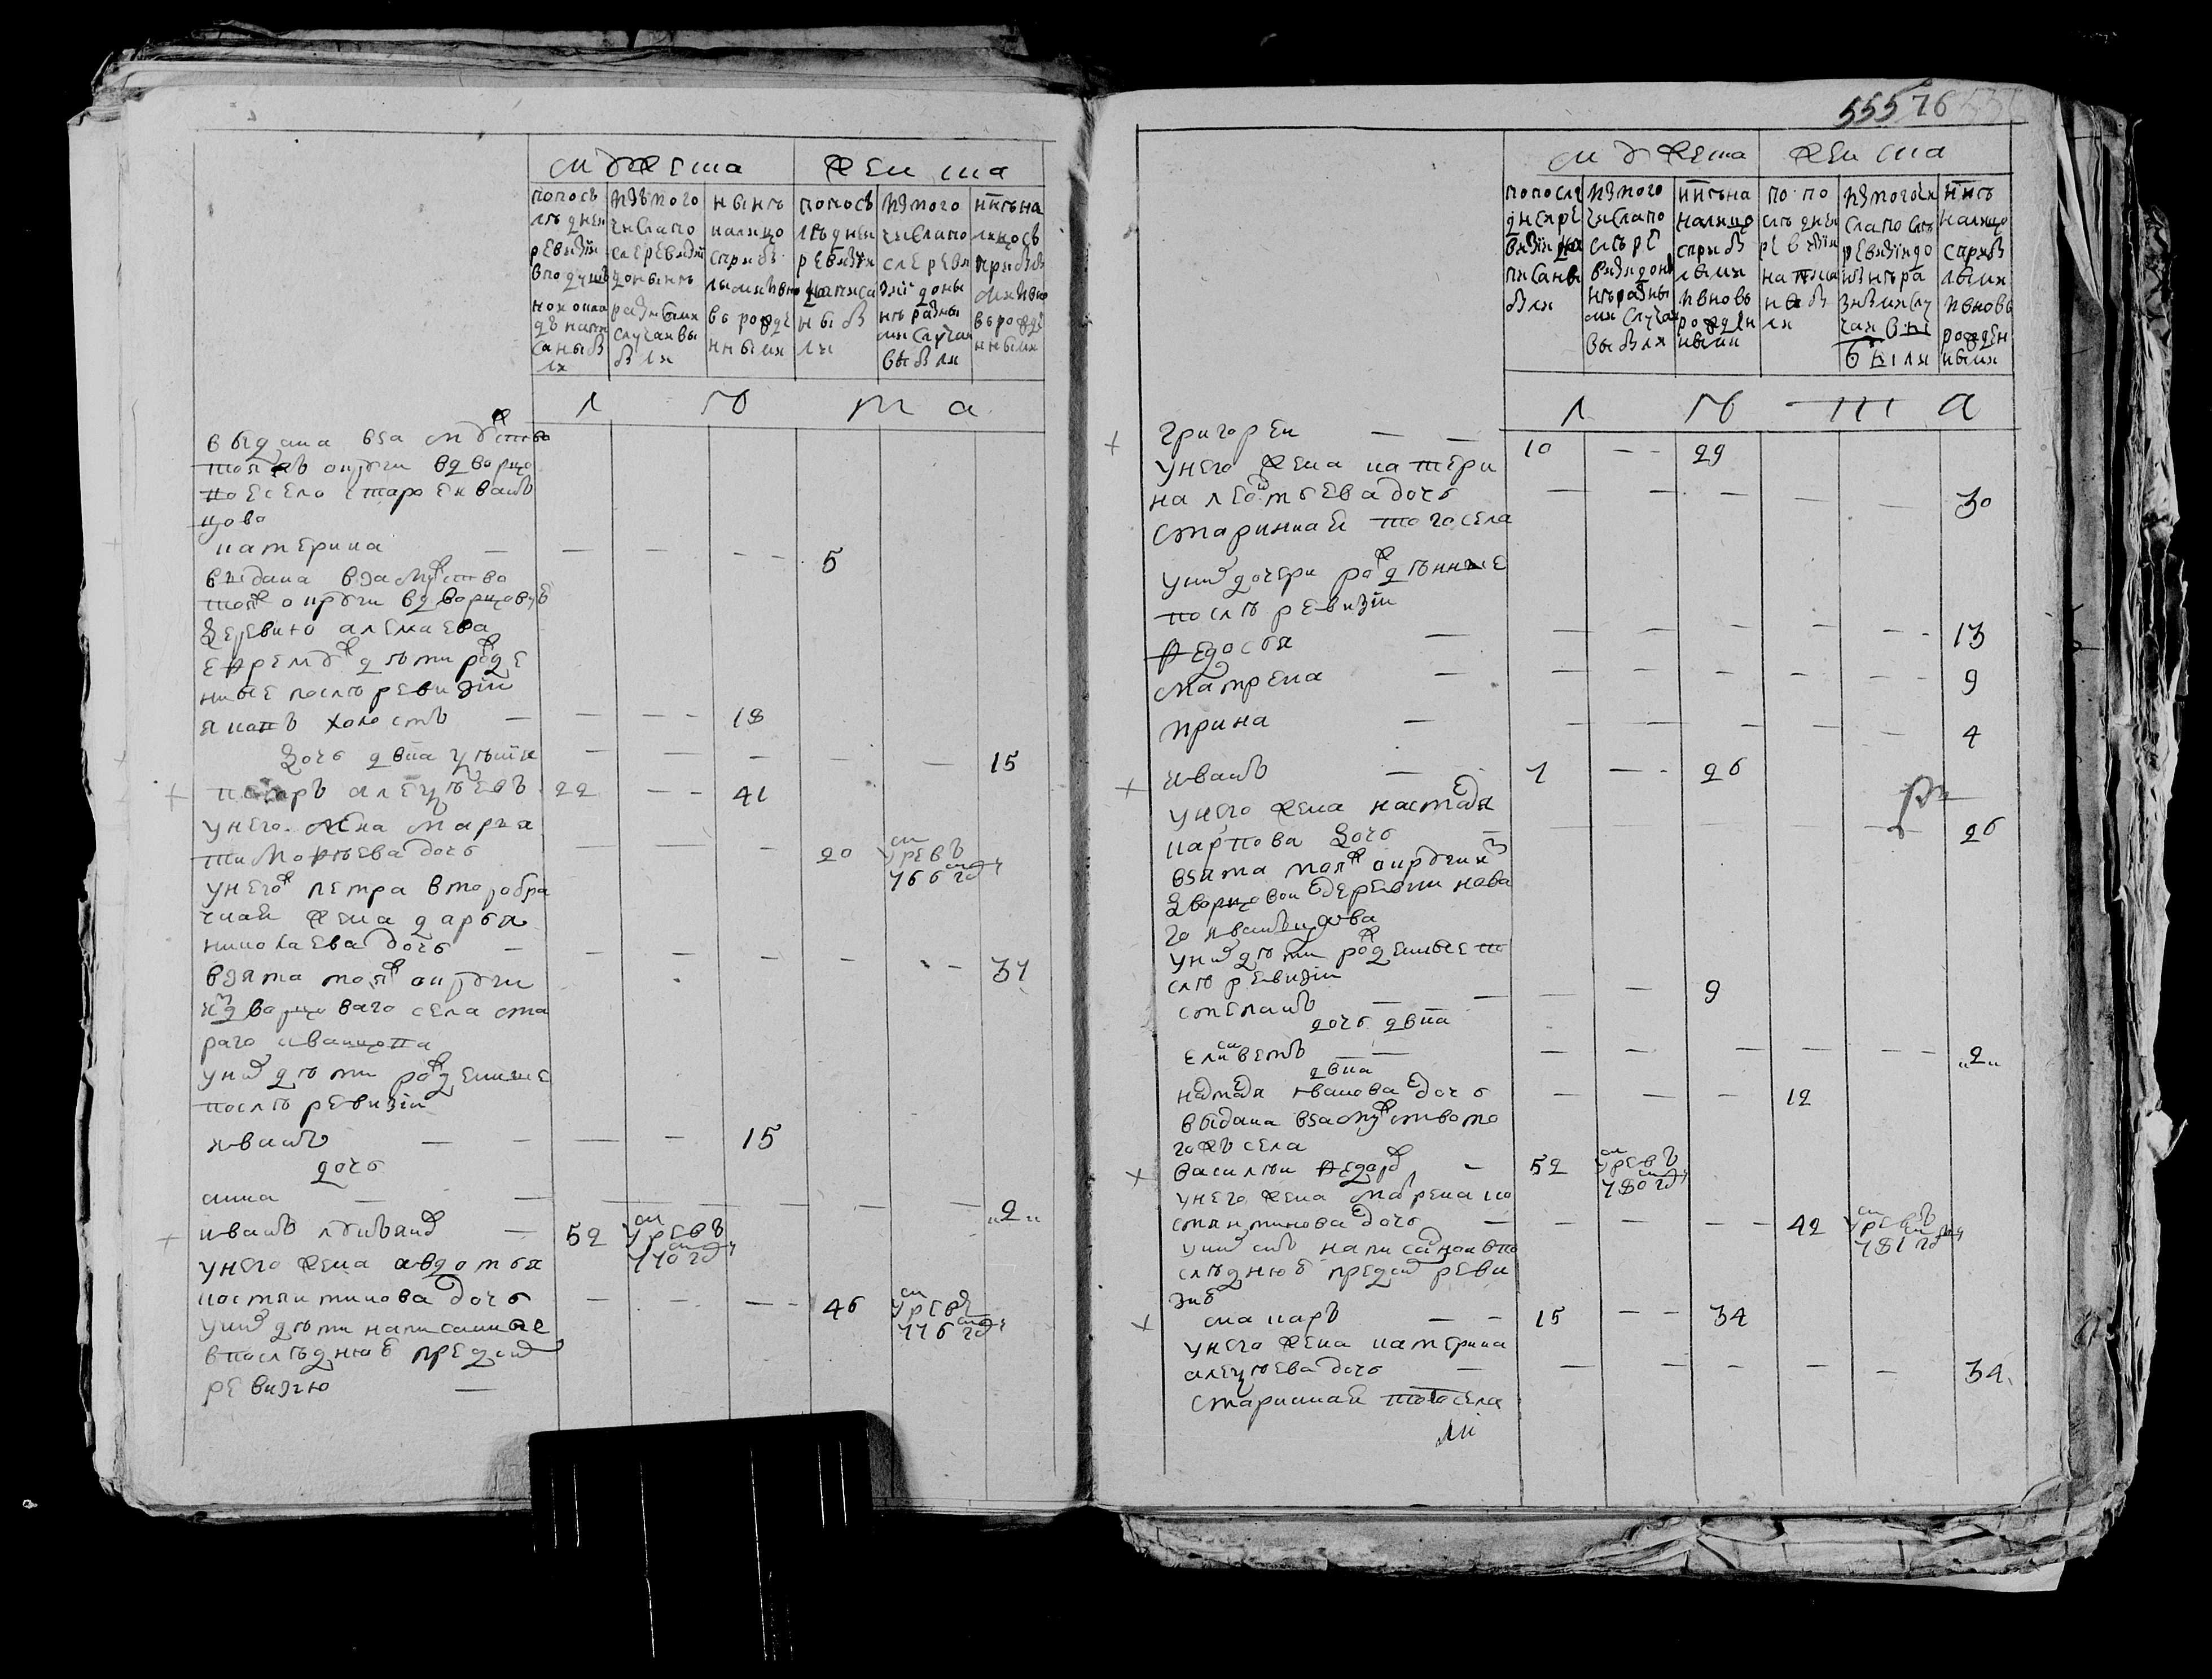 мужеска
женска
попосъ
лѣднеи
ревизїи
вподуш
номокла
дѣ напи
саныбы
ли
изътого
числапо
слеревизїи
донынѣ
разными
случаивы
были
нынѣ
налицо
сприбы
лымиивно
вь рожде
нными
попосъ
лѣднеи
ревизїи
написа
ныбы
ли
изтого
числапо
слеревиз
зїи доны
нѣ разны
ми случаи
выбыли
ннѣна
лицосъ
прибы
лмиивно
вьрожде
нными
л ѣ т а
выдана вза мужство
тояжъ округи вдворцо
вое село старое иванъ
цово
катерина — — — - - 5
выдана взамужство
тояж округи вдворцовую
деревню алемаева
ефремовых дѣти рожде
ные послѣ ревизїи
яковъ холостъ — — - - 18
дочь двка устинья — — — — — 15
петръ алеѯѣевъ 22 - - 41
унего жена марья
тимофѣева дочь — — — 20 умревъ
766 году
унегож петра второбра
чная жена дарья
николаева дочь — — — — - - 31
взята тояж округи
из дворцоваго села ста
раго иванцова
уних дѣти рожденные
послѣ ревизїи
иванъ — — — — 15
дочь
анна — — — — — — — „2„
иванъ лукьянов — 52 умревъ
770 году
унего жена авдотья
костянтинова дочь — — — - 46 умерла
776 году
уних дѣти написанные
впослѣднюю пред сим
ревизию —
555 76
мужеска
женска
попослѣ
днеире
визїи на
писаны
были
изтого
числапо
слѣре
визїидоны
нѣразны
ми случаи
выбыли
ннѣна
налицо
сприбы
лыми
ивновь
рожден
ными
по по
слѣднеи
ревизїи
написа
ны бы
ли
изтогочи
слапослѣ
ревизїидо
ннѣра
знымислу
чаи вы
были
ннѣ
налицо
сприбы
лыми
ивновь
рожден
ными
л ѣ т а
григореи — — 10 - - 29
унего жена катери
на леонтьева дочь — — — — — 30
старинная тогосела
уних дочери рожденные
послѣ ревизїи
федосья — — — — — - - 13
матрена — — — — — — - 9
ирина — — — — — — 4
иванъ — 7 - - 26
унего жена настася
карпова дочь — — — — — — 26
взята тояж округи из
дворцовои деревни нова
го иванцова
уних дѣти рожденные по
слѣ ревизїи
степанъ — — — — 9
дочь двка
елисаветъ — — — — — — - - „2„
двка
иванова дочь — — — 12
выдана взамужство то
гожъ села
василеи федоров — 52 умревъ
780 году
унего жена маврена ко
стянтинова дочь — — — - - 42 умревъ
781 году
уних сынъ написанои впо
слѣднюю предсим реви
зию
макаръ — — 15 - - 34
унего жена катерина
алеѯѣева дочь — — — — — — 34.
старинная тогосела